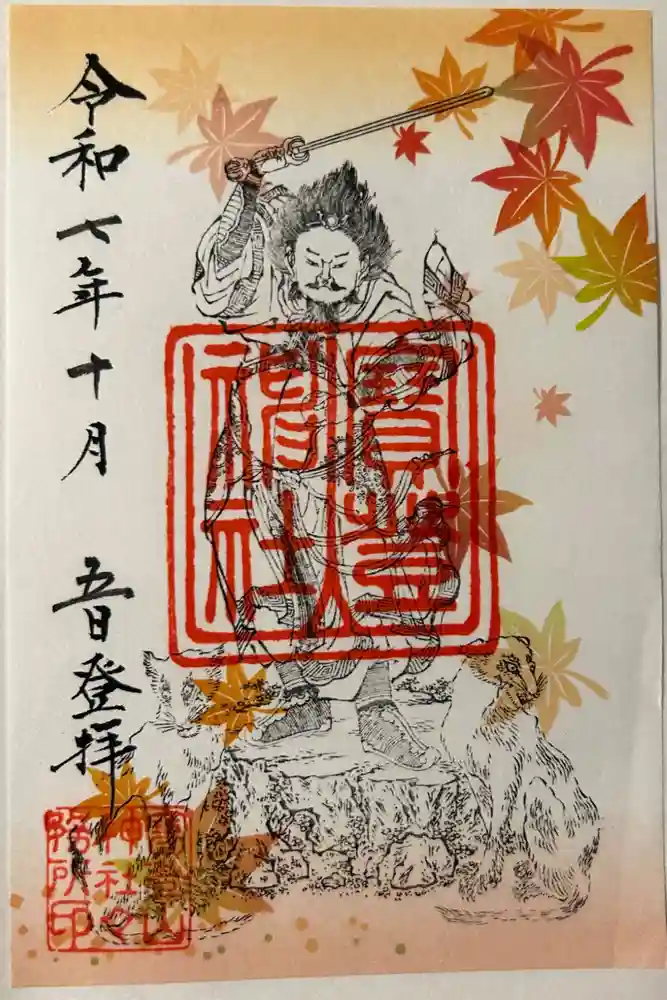 令和七年十月 五日登拝
寶登山
神社
寶登山
神社々
務所印